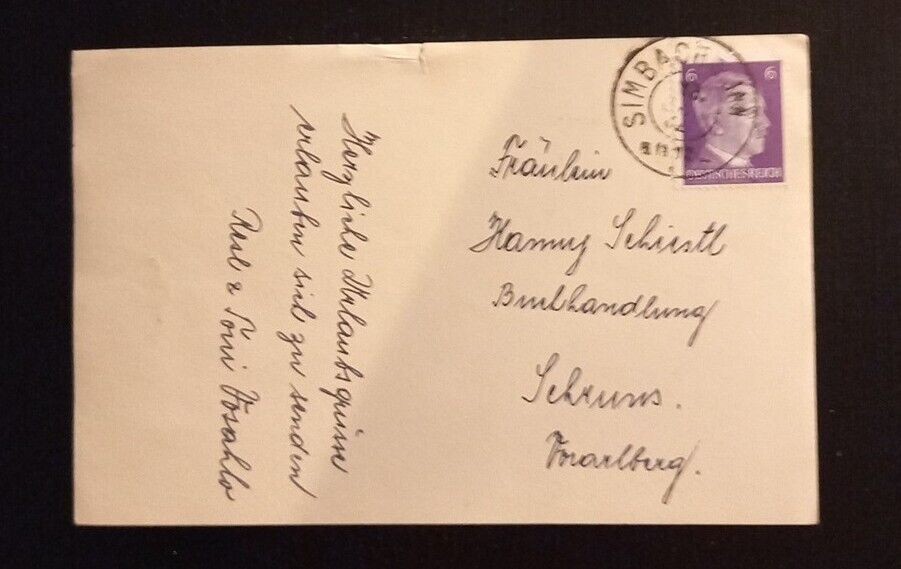 Herzliche Urlaubsgrüsse
erlauben sich zu senden
& Toni
SIMBACH INN
6 6
DEUTSCHES REICH
Fräulein
Hanny Schiestl
Buchhandlung
Schruns.
Vorarlberg.